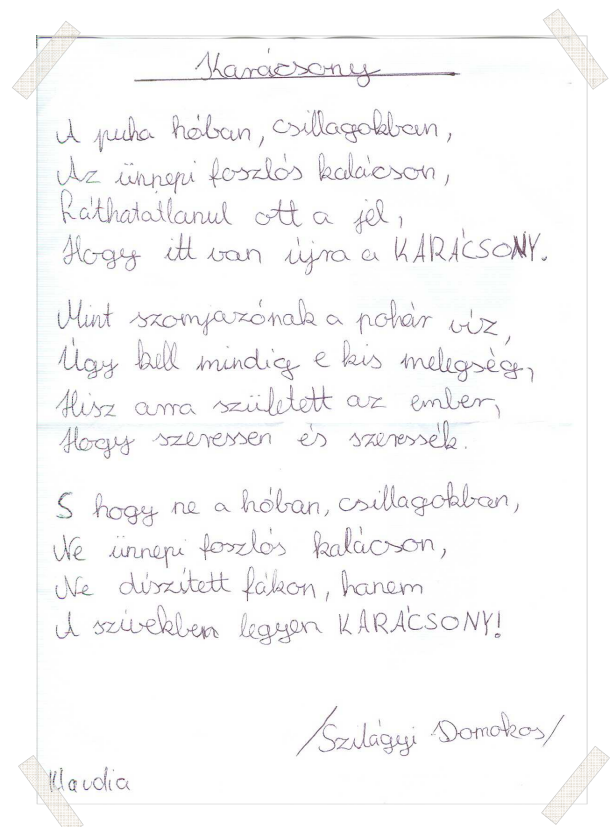 Karácsony
A puha hóban, csillagokban,
Az ünnepi foszlós kalácson,
Láthatatlanul ott a jel,
Hogy itt van újra a KARÁCSONY.
Mint szomjazónak a pohár víz,
Úgy kell mindig e kis melegség,
Hisz arra született az ember,
Hogy szeressen és szeressék.
S hogy ne a hóban, csillagokban,
Ne ünnepi foszlós kalácson,
Ne díszített fákon, hanem
A szívekben legyen KARÁCSONY!
/Szilágyi Domokos/
Klaudia